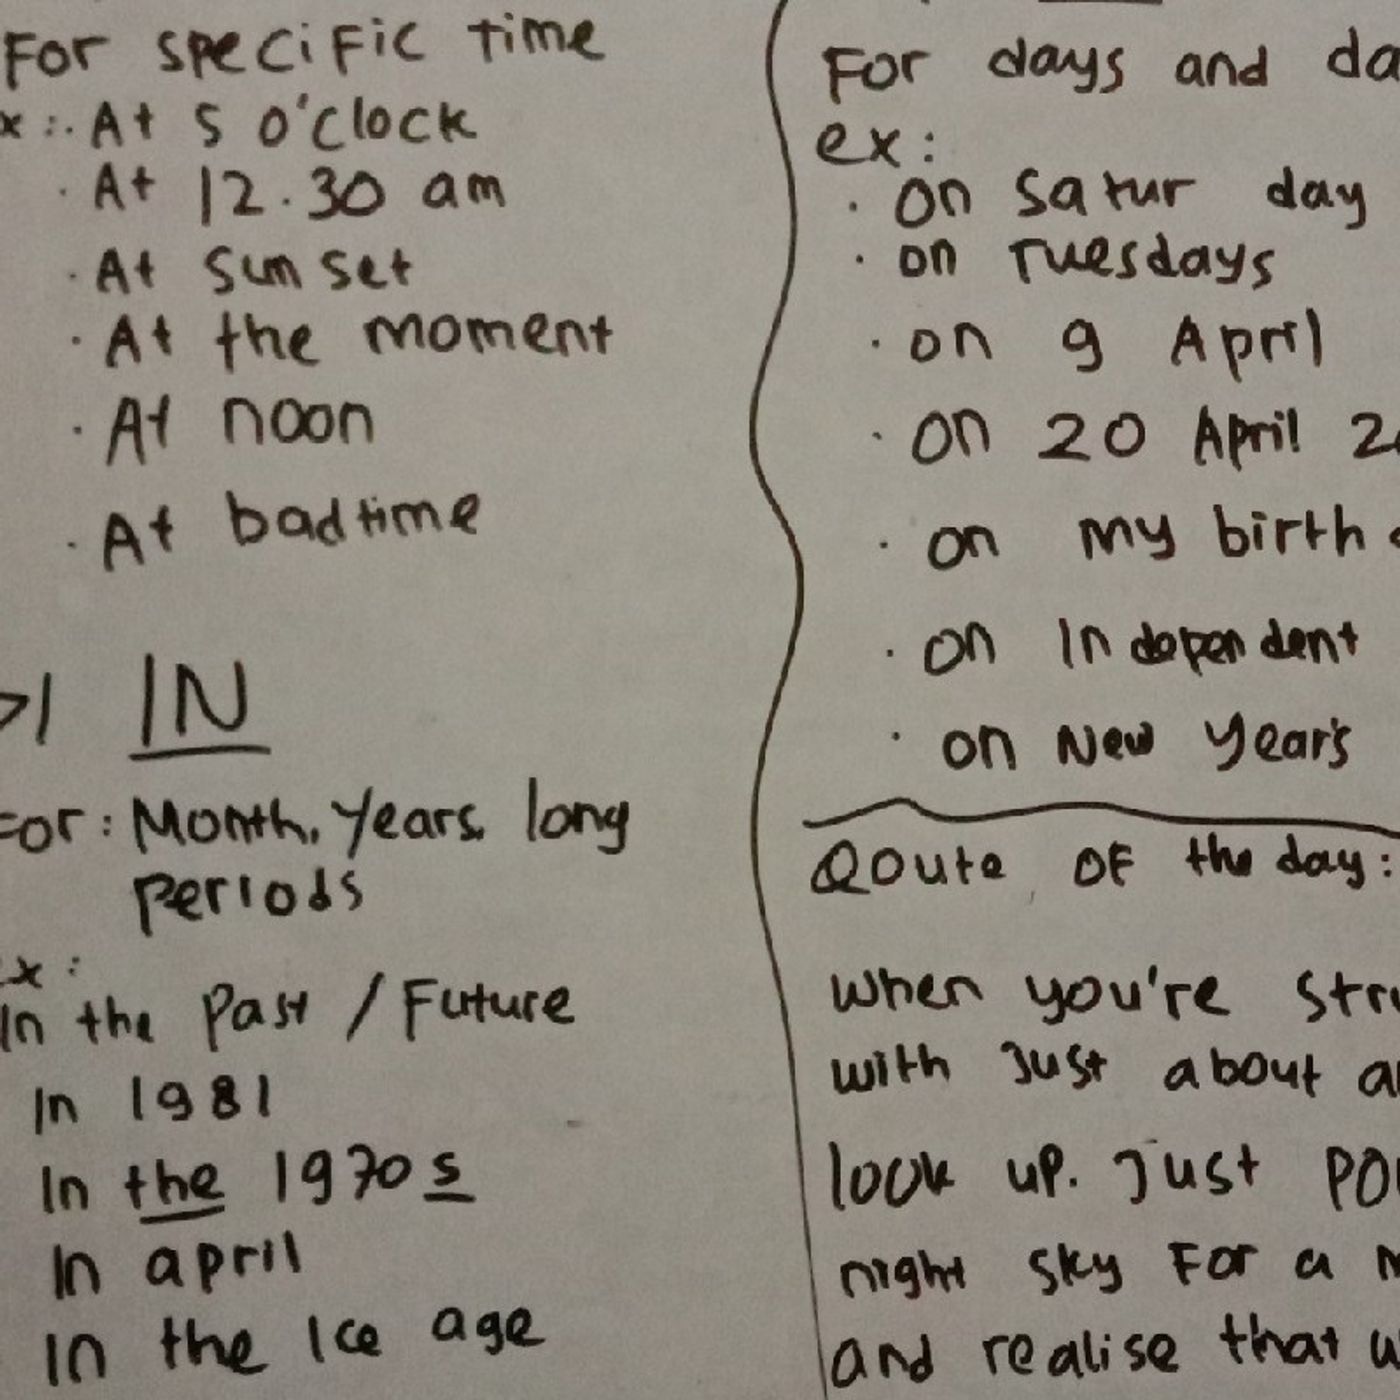 For specific time
x:. At 5 o'clock
. At 12.30 am
. At sun set
. At the moment
. At noon
. At badtime
>| IN
For: Month, years, long
periods
ex:
In the Past / Future
In 1981
In the 1970s
In april
In the Ice age
For days and da
ex:
. on Satur day
. on Tuesdays
. on 9 April
. on 20 April 2
. on my birth
. on In depen dent
. on New Year's
Qoute OF the day:
when you're stru
with Just about a
look up. Just po
night sky For a m
and realise that w